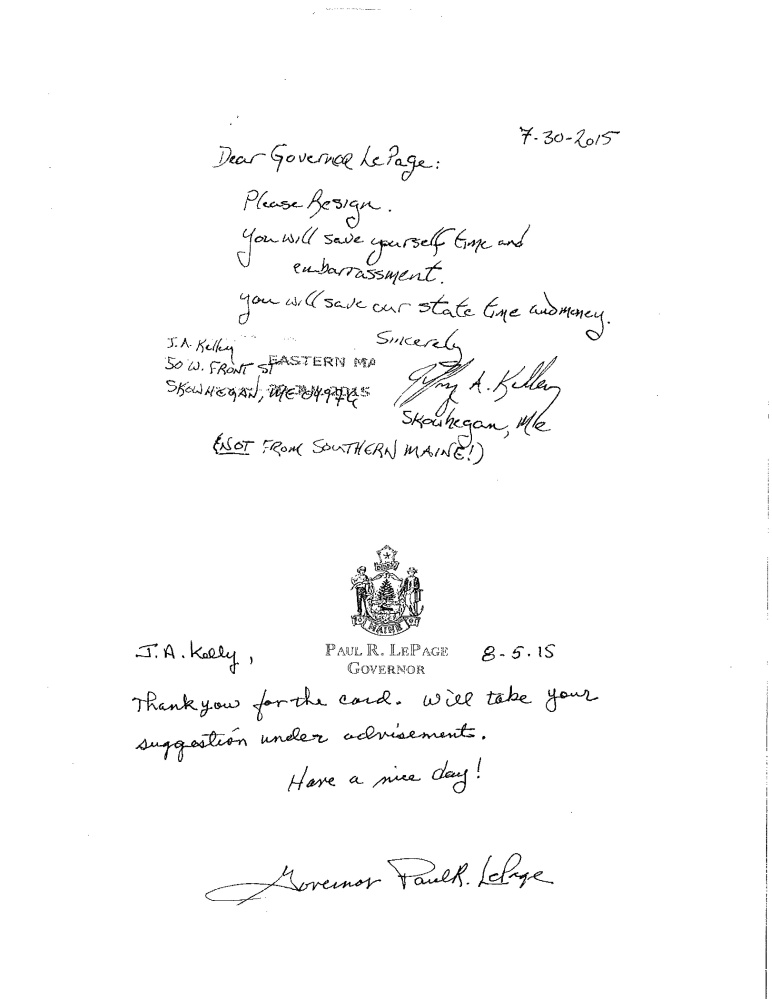 7-30-2015
Dear Governor LePage:
Please Resign.
You will save yourself time and
embarrassment.
you will save our state time and money.
Sincerely
J.A. Kelley
50 W. FRONT ST
EASTERN MA
SKOWHEGAN, ME 04976
Jeffrey A. Kelley
Skowhegan, Me
(NOT FROM SOUTHERN MAINE!)
MAINE
J.A. Kelly,
PAUL R. LEPAGE
GOVERNOR
8-5-15
Thank you for the card. Will take your
suggestion under advisements.
Have a nice day!
Governor Paul R. LePage